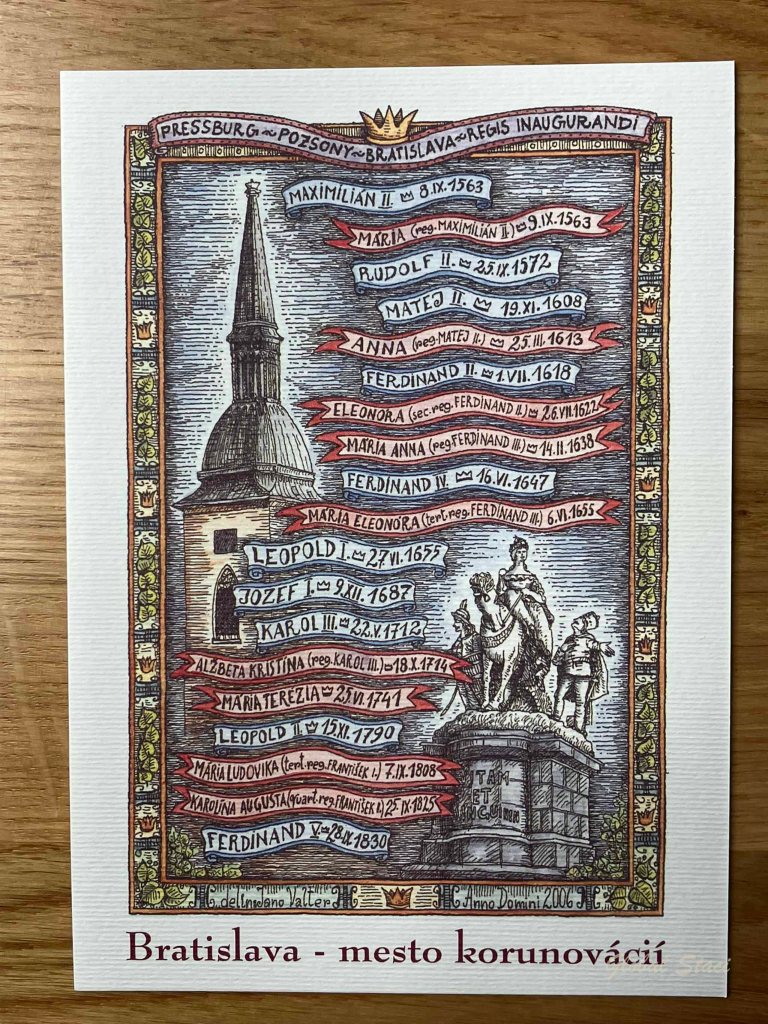 PRESSBURG~POZSONY~BRATISLAVA~REGIS INAUGURANDI
MAXIMILIÁN II. 8.IX.1563
MÁRIA (reg. MAXIMILIÁN II.) 9.IX.1563
RUDOLF II. 25.IX.1572
MATEJ II. 19.XI.1608
ANNA (reg. MATEJ II.) 25.III.1613
FERDINAND II. 1.VII.1618
ELEONÓRA (sec. reg. FERDINAND II.) 26.VII.1622
MÁRIA ANNA (reg. FERDINAND III.) 14.II.1638
FERDINAND IV. 16.VI.1647
MÁRIA ELEONÓRA (tert. reg. FERDINAND III.) 6.VI.1655
LEOPOLD I. 27.VI.1655
JOZEF I. 9.XII.1687
KAROL III. 22.V.1712
ALŽBETA KRISTÍNA (reg. KAROL III.) 18.X.1714
MÁRIA TERÉZIA 25.VI.1741
LEOPOLD II. 15.XI.1790
MÁRIA LUDOVIKA (tert. reg. FRANTIŠEK I.) 7.IX.1808
KAROLÍNA AUGUSTA (quart. reg. FRANTIŠEK I.) 25.IX.1825
FERDINAND V. 28.IX.1830
VITAM
ET
SANGUINEM
del. Jano Valter
Anno Domini 2006
Bratislava - mesto korunovácií